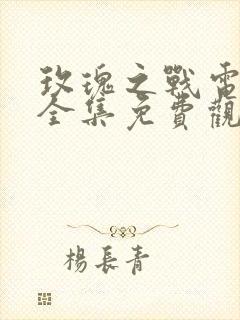 玫瑰之戰電
全集免費觀
楊長青